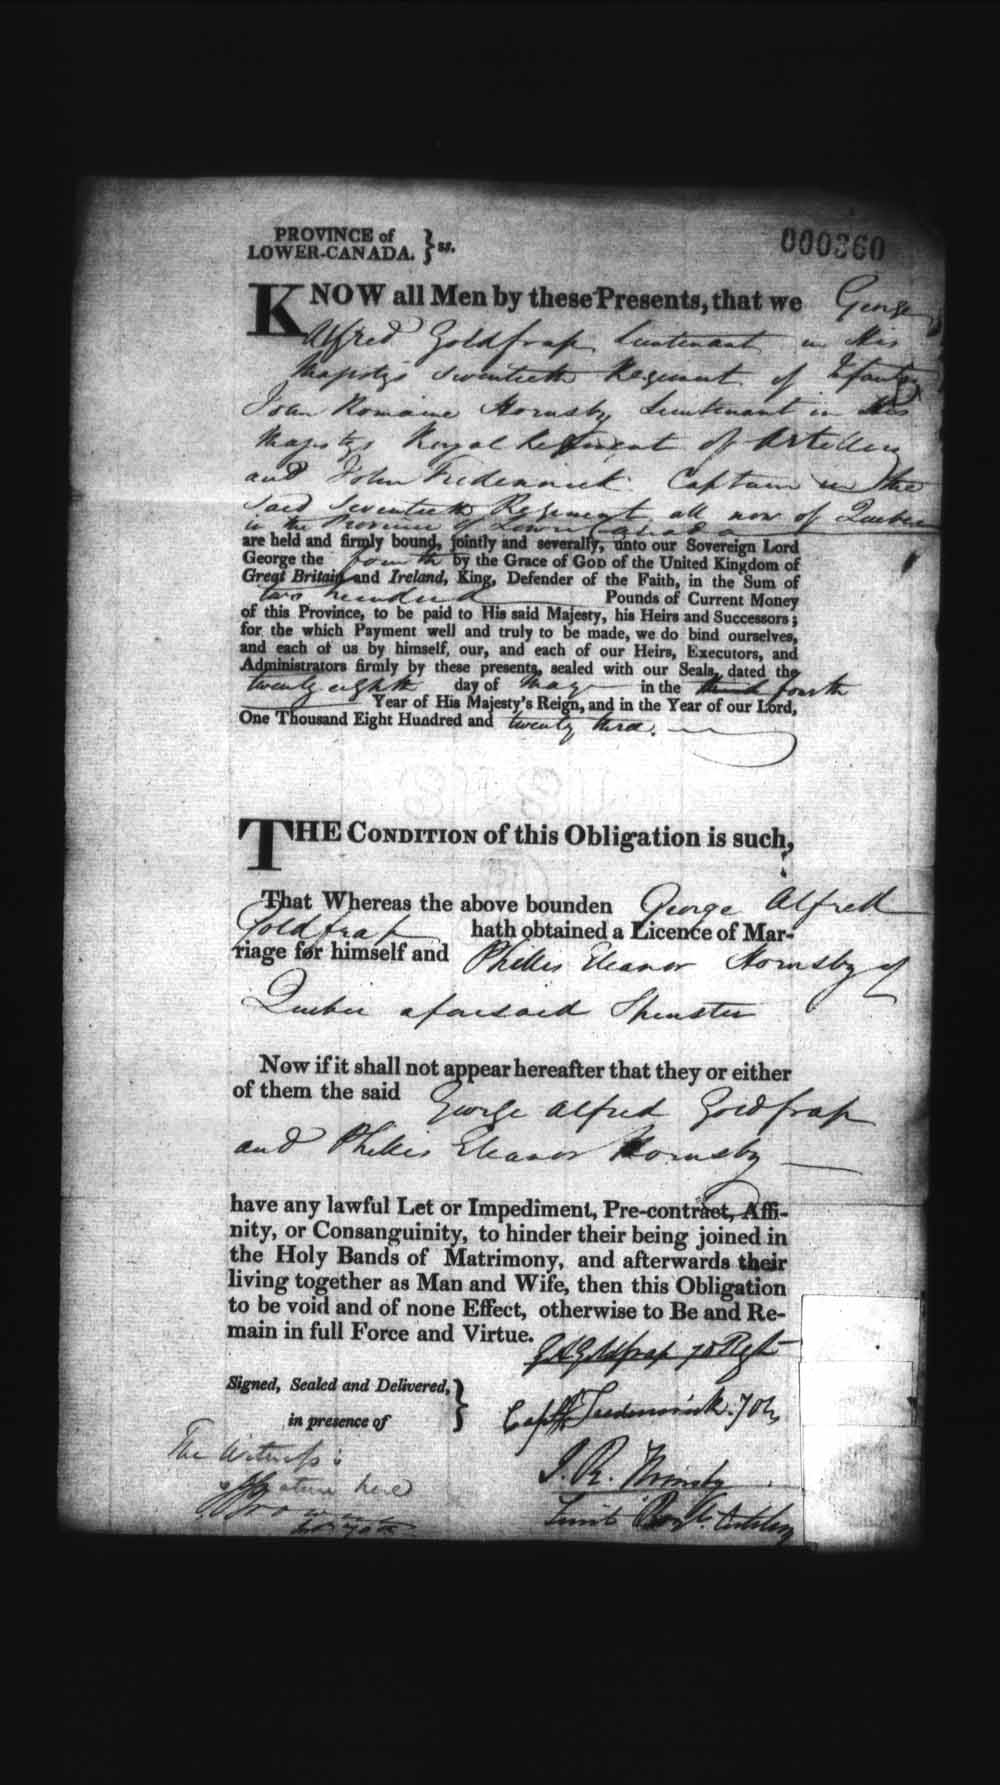 PROVINCE of
LOWER-CANADA. } ss.
000360
KNOW all Men by these Presents, that we George
Alfred Goldfrap Lieutenant in His
Majestys seventieth Regiment of Infantry
John Romaine Hornsby Lieutenant in His
Majestys Royal Regiment of Artillery
and John Frederick Captain in the
said seventieth Regiment all now of Quebec
in the Province of Lower Canada
are held and firmly bound, jointly and severally, unto our Sovereign Lord
George the fourth by the Grace of GOD of the United Kingdom of
Great Britain and Ireland, King, Defender of the Faith, in the Sum of
two hundred Pounds of Current Money
of this Province, to be paid to His said Majesty, his Heirs and Successors;
for the which Payment well and truly to be made, we do bind ourselves,
and each of us by himself, our, and each of our Heirs, Executors, and
Administrators firmly by these presents, sealed with our Seals, dated the
twenty eighth day of May in the third fourth
Year of His Majesty's Reign, and in the Year of our Lord,
One Thousand Eight Hundred and twenty third.
THE CONDITION of this Obligation is such,
That Whereas the above bounden George Alfred
Goldfrap hath obtained a Licence of Mar-
riage for himself and Phillis Eleanor Hornsby of
Quebec aforesaid Spinster
Now if it shall not appear hereafter that they or either
of them the said George Alfred Goldfrap
and Phillis Eleanor Hornsby
have any lawful Let or Impediment, Pre-contract, Affi-
nity, or Consanguinity, to hinder their being joined in
the Holy Bands of Matrimony, and afterwards their
living together as Man and Wife, then this Obligation
to be void and of none Effect, otherwise to Be and Re-
main in full Force and Virtue.
G A Goldfrap 70 Regt
Signed, Sealed and Delivered,
in presence of
Capt Frederick 70th
The Witness
signature here
J. R. Hornsby
Lieut Royl. Artillery